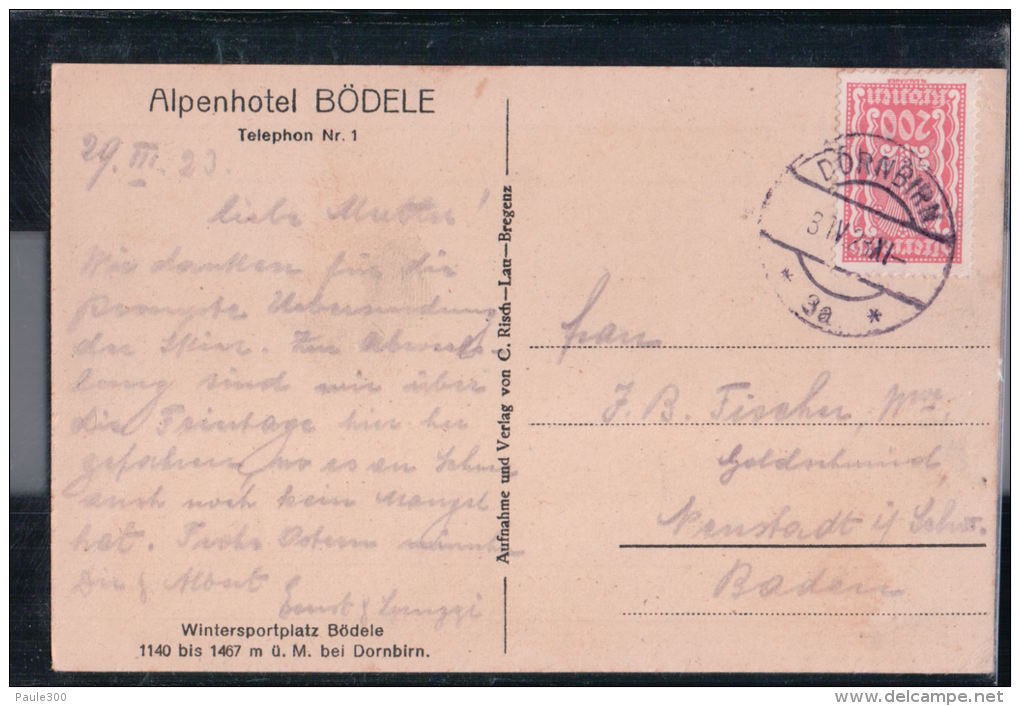 Alpenhotel BÖDELE
Telephon Nr. 1
29. III. 23.
liebe Mutter!
Wir danken für die
prompte Uebersendung
der Skier. Zur Abwechs-
lung sind wir über
die Feiertage hier her
gefahren, wo es an Schnee
auch noch kein Mangel
hat. Frohe Ostern wünschen
Dir & Albert
Ernst &
Wintersportplatz Bödele
1140 bis 1467 m ü. M. bei Dornbirn.
Aufnahme und Verlag von C. Risch-Lau-Bregenz
Kronen
200
DORNBIRN
3a
Frau
J. B. Fischer, Wwe
Goldschmied
Neustadt i/ Schw.
Baden
Paule300
www.delcampe.net